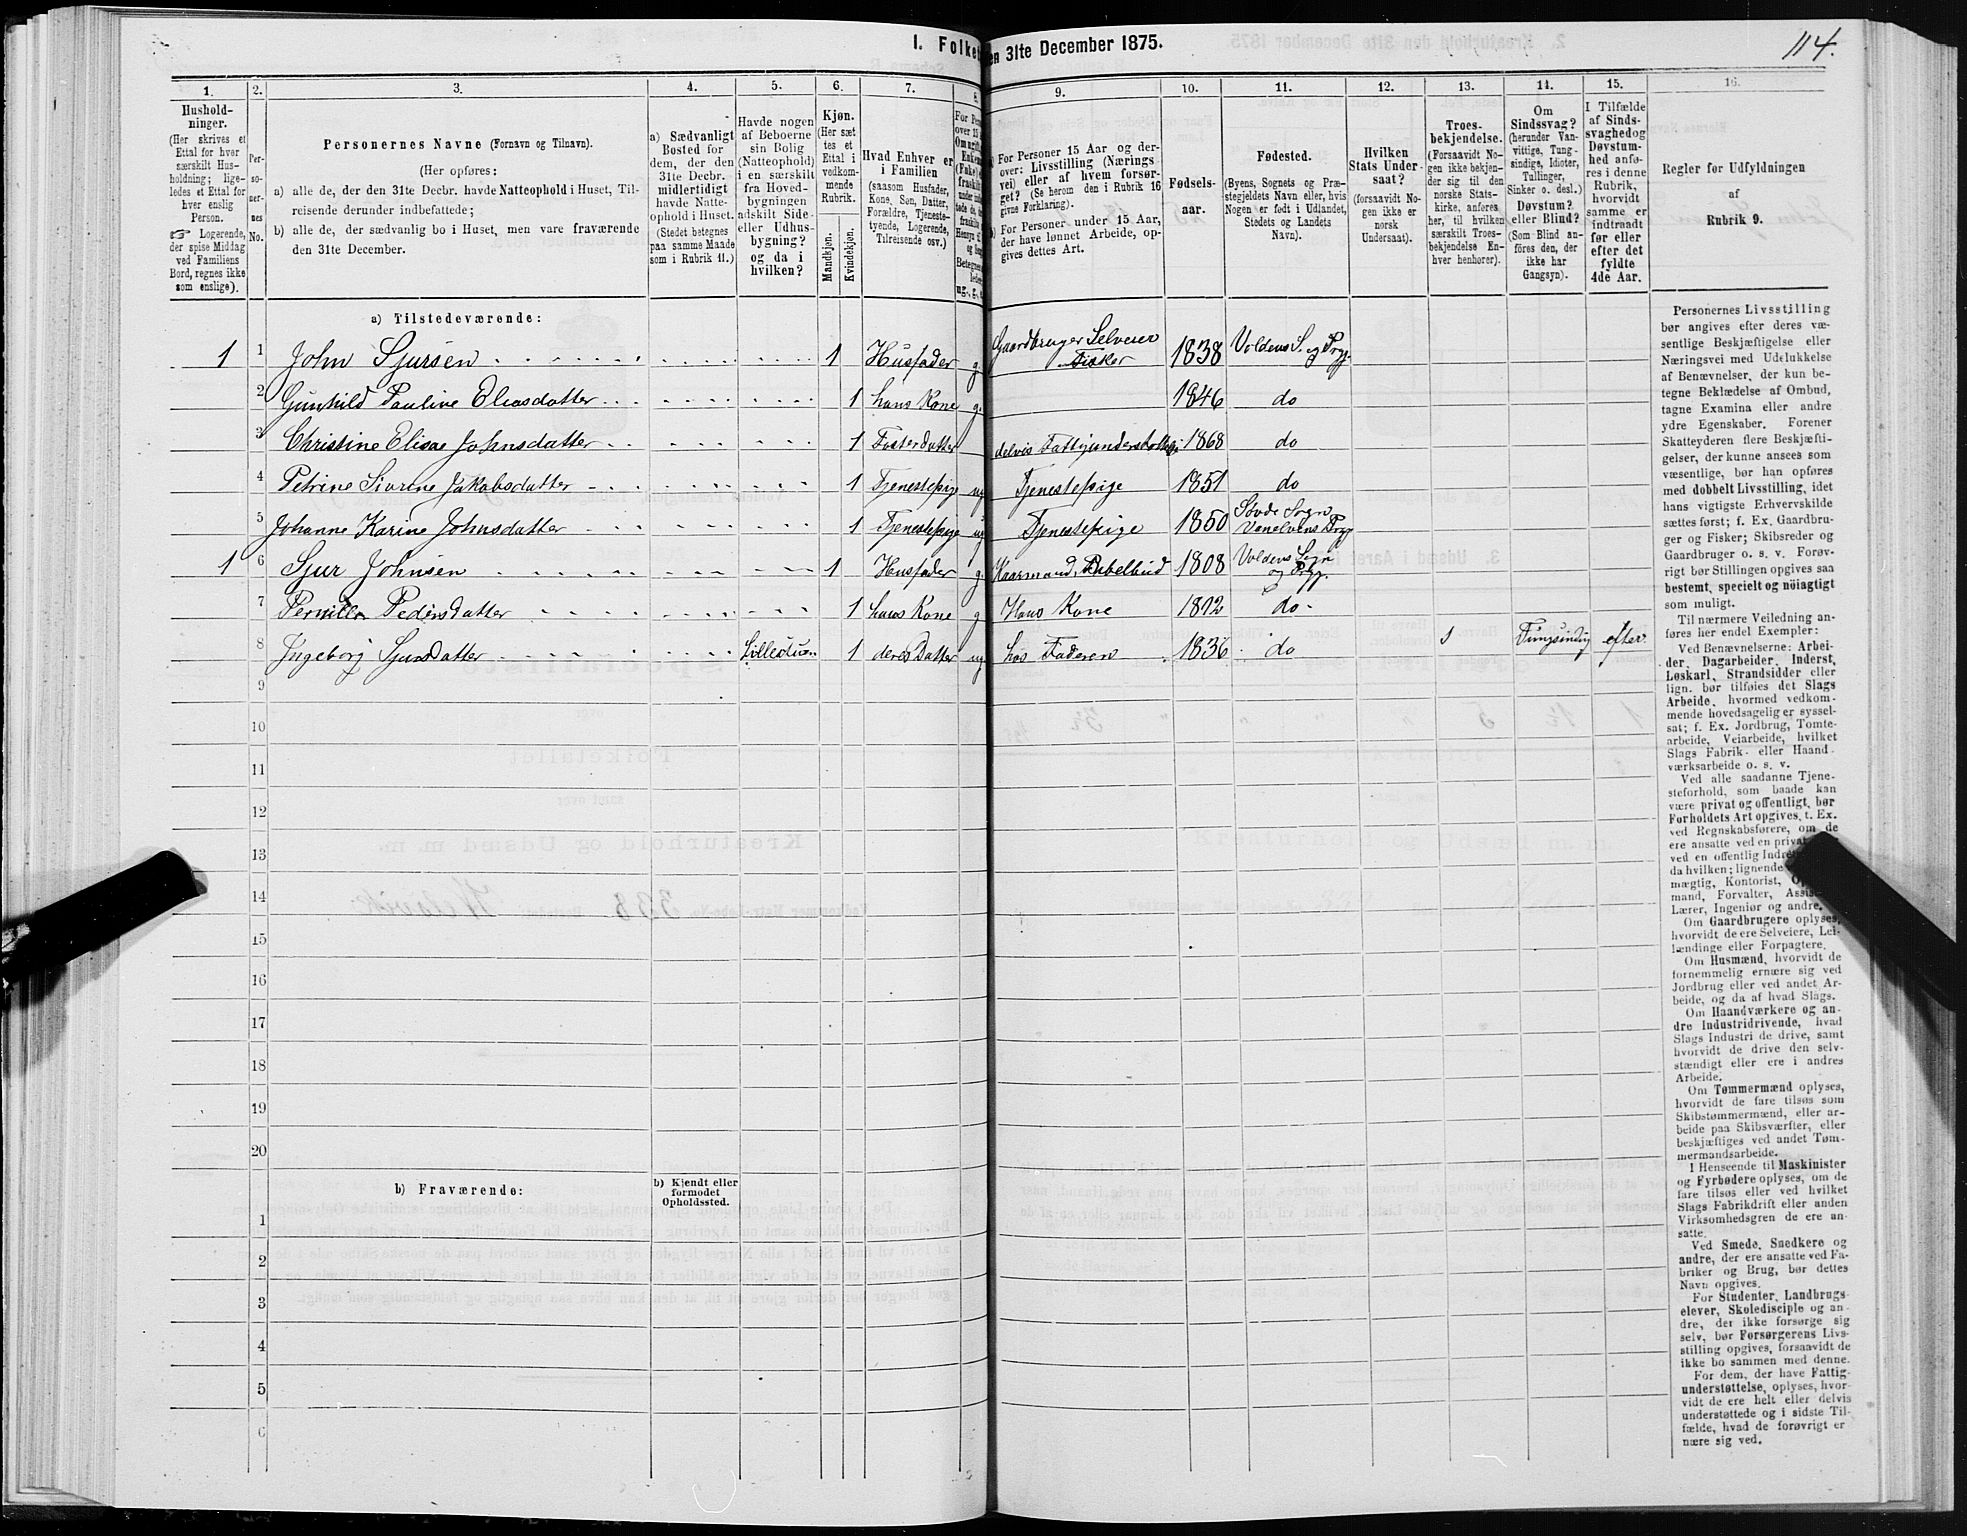 114.
I. Folket
en 31te December 1875.
1.
2.
3.
4.
5.
6.
7.
8.
9.
10.
11.
12.
13.
14.
15.
16.
Hushold-
ninger.
(Her skrives et
Ettal for hver
særskilt Hus-
holdning; lige-
ledes et Ettal for
hver enslig
Person.
☞ Logerende,
der spise Middag
ved Familiens
Bord, regnes ikke
som enslige).
Per-
so-
ner-
nes
No.
Personernes Navne (Fornavn og Tilnavn).
(Her opføres:
a) alle de, der den 31te Decbr. havde Natteophold i Huset, Til-
reisende derunder indbefattede;
b) alle de, der sædvanlig bo i Huset, men vare fraværende
den 31te December.
a) Sædvanligt
Bosted for
dem, der den
31te Decbr.
midlertidigt
havde Natte-
ophold i Huset.
(Stedet betegnes
paa samme Maade
som i Rubrik 11.)
Havde nogen
af Beboerne
sin Bolig
(Natteophold)
i en særskilt
fra Hoved-
bygningen
adskilt Side-
eller Udhus-
bygning?
og da i
hvilken?
Kjøn.
(Her sæt
tes et
Ettal i
vedkom-
mende
Rubrik.
Mandkjøn.
Kvindekjøn.
Hvad Enhver er
i Familien
(saasom Husfader,
Kone, Søn, Datter,
Forældre, Tjeneste-
tyende, Logerende,
Tilreisende osv.)
For Personer 15 Aar og der-
over: Livsstilling (Nærings
vei) eller af hvem forsør-
get? (Se herom den i Rubrik 16
givne Forklaring).
b) For Personer under 15 Aar,
der have lønnet Arbeide, op-
gives dettes Art.
Fødsels-
aar.
Fødested.
(Byens, Sognets og Præ-
stegjeldets Navn eller, hvis
Nogen er født i Udlandet,
Stedets og Landets
Navn).
Hvilken
Stats Under-
saat?
(forsaavidt No-
gen ikke er
norsk
Undersaat).
Troes-
bekjendelse.
(Forsaavidt No-
gen ikke bekjen-
der sig til den
norske Stats-
kirke, anføres
her, til hvilken
særskilt Troes-
bekjendelse En-
hver henhører).
Om
Sindssvag?
(herunder Van-
vittige, Tung-
sindige, Idioter,
Tullinger,
Sinker o. desl.)
Døvstum?
eller Blind?
(Som Blind an-
føres den, der
ikke har
Gangsyn).
I Tilfælde
af Sinds-
svaghed og
Døvstum-
hed anfø-
res i denne
Rubrik,
hvorvidt
samme er
indtraadt
før eller
efter det
fyldte
4de Aar.
Regler for Udfyldningen
af
Rubrik 9.
a) Tilstedeværende:
1 1 John Sjursen 1 Husfader g Gaardbruger Selveier Fisker 1838 Voldens S. og Prgj.
2 Gunhild Pauline Eliasdatter 1 hans Kone g. 1846 do
3 Christine Elisae Johnsdatter 1 Fosterdatter delvis 1868 do
4 Petrine Sivrine Jakobsdatter 1 Tjenestepige ug Tjenestepige 1851 do
5 Johanne Karine Johnsdatter 1 Tjenestepige ug Tjenestepige 1850 Sogn Prgj
1 6 Sjur Johnsen 1 Husfader g Kaarmand, 1808 Voldens Sogn og Prgj.
7 Pernille Pedersdatter 1 hans Kone g Hans Kone 1812 do
8 Ingeborg Sjursdatter 1 deres Datter ug hos Faderen 1836 do 1 Tungsindig efter
9
10
11
12
13
14
15
16
17
18
19
20
b) Fraværende:
b) Kjendt eller
formodet
Opholdssted.
1
2
3
4
5
6
Personernes Livsstilling
bør angives efter deres væ-
sentlige Beskjæftigelse eller
Næringsvei med Udelukkelse
af Benævnelser, der kun be-
tegne Beklædelse af Ombud,
tagne Examina eller andre
ydre Egenskaber. Forener
Skatteyderen flere Beskjæfti-
gelser, der kunne ansees som
væsentlige, bør han opføres
med dobbelt Livsstilling, idet
hans vigtigste Erhvervskilde
sættes først; f. Ex. Gaardbru-
ger og Fisker; Skibsreder og
Gaardbruger o. s. v. Forøv-
rigt bør Stillingen opgives saa
bestemt, specielt og nøiagtigt
som muligt.
Til nærmere Veiledning an-
føres her endel Exempler:
Ved Benævnelserne: Arbei-
der, Dagarbeider, Inderst,
Løskarl, Strandsidder eller
lign. bør tilføies det Slags
Arbeide, hvormed vedkom-
mende hovedsagelig er syssel-
sat; f. Ex. Jordbrug, Tomte-
arbeide, Veiarbeide, hvilket
Slags Fabrik- eller Haand-
værksarbeide o. s. v.
Ved alle saadanne Tjene-
steforhold, som baade kan
være privat og offentligt, bør
Forholdets Art opgives, t. Ex.
ved Regnskabsførere, om de
ere ansatte ved en privat
ved en offentlig
da hvilken; lignende
mægtig, Kontorist,
mand, Forvalter,
Lærer, Ingeniør og andre.
Om Gaardbrugere oplyses,
hvorvidt de ere Selveiere, Lei-
lændinge eller Forpagtere.
Om Husmænd, hvorvidt de
fornemmelig ernære sig ved
Jordbrug eller ved andet Ar-
beide, og da af hvad Slags.
Om Haandværkere og an-
dre Industridrivende, hvad
Slags Industri de drive, samt
hvorvidt de drive den selv-
stændigt eller ere i andres
Arbeide.
Om Tømmermænd oplyses,
hvorvidt de fare tilsøs som
Skibstømmermænd, eller ar-
beide paa Skibsværfter, eller
beskjæftiges ved andet Tøm-
mermandsarbeide.
I Henseende til Maskinister
og Fyrbødere oplyses, om de
fare tilsøs eller ved hvilket
Slags Fabrikdrift eller anden
Virksomhedsgren de ere an-
satte.
Ved Smede, Snedkere og
andre, der ere ansatte ved Fa-
briker og Brug, bør dettes
Navn opgives.
For Studenter, Landbrugs-
elever, Skoledisciple og an-
dre, der ikke forsørge sig
selv, bør Forsørgerens Livs-
stilling opgives, forsaavidt de
ikke bo sammen med denne.
For dem, der have Fattig-
understøttelse, oplyses, hvor-
vidt de ere helt eller delvis
understøttede og i sidste Til-
fælde, hvad de forøvrigt er
nære sig ved.